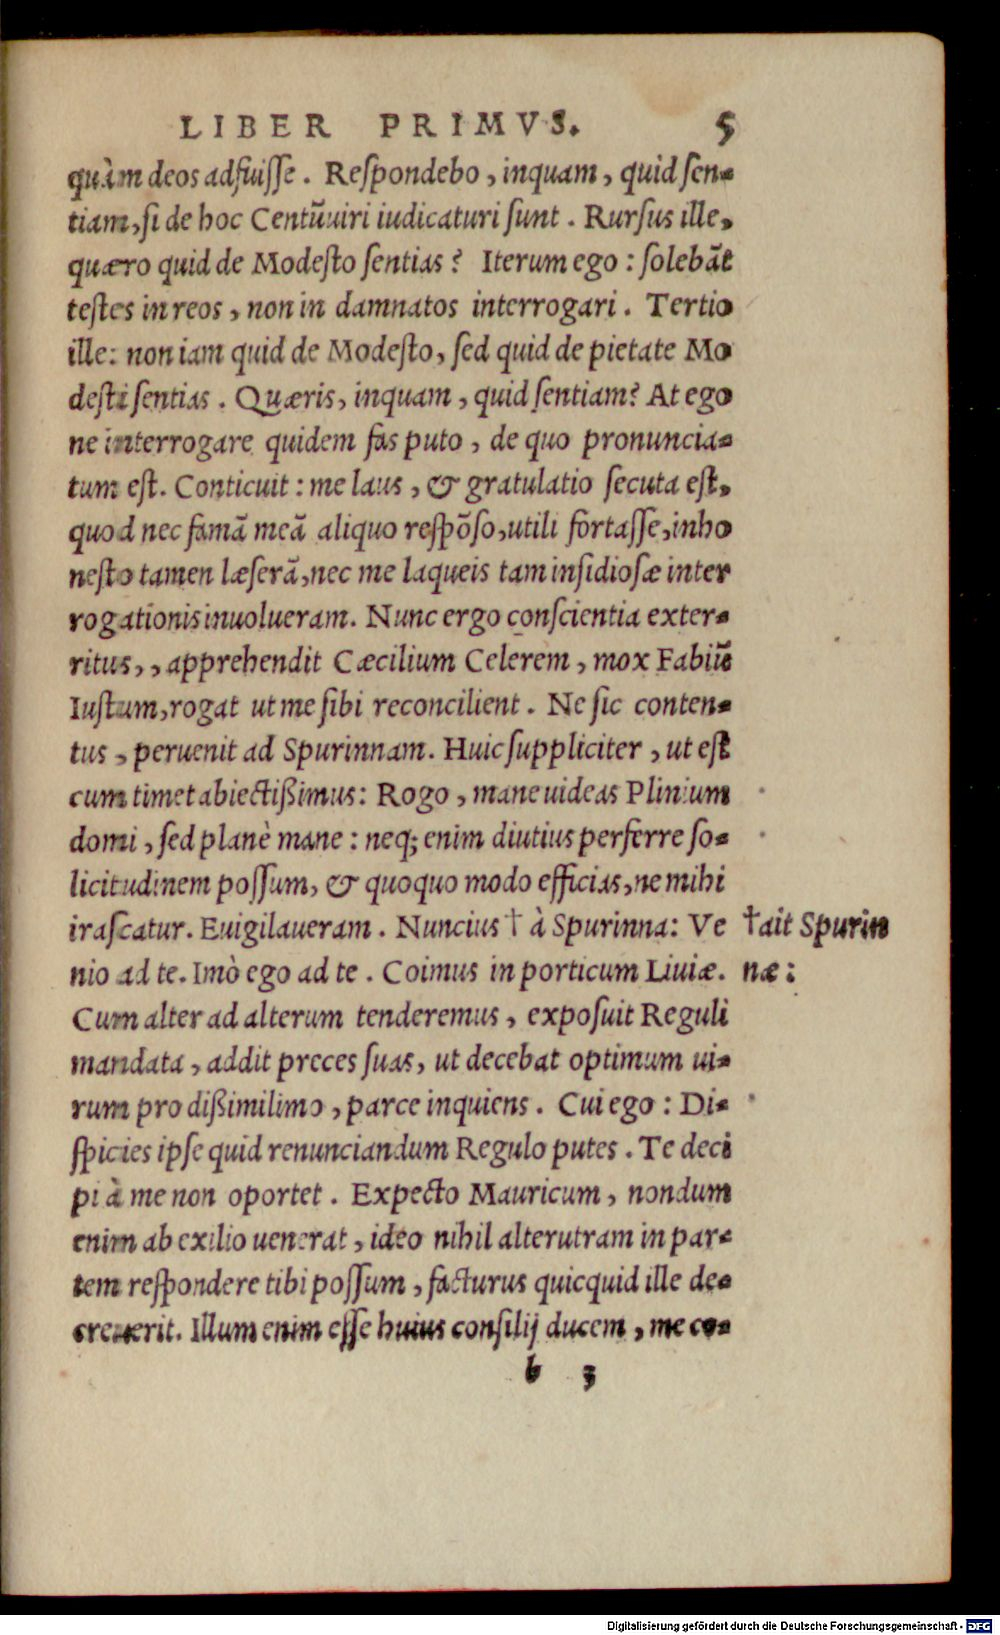 LIBER PRIMVS. 5
quàm deos adfuiſſe. Reſpondebo, inquam, quid ſen-
tiam, ſi de hoc Centũuiri iudicaturi ſunt. Rurſus ille,
quæro quid de Modeſto ſentias? Iterum ego: ſolebãt
teſtes in reos, non in damnatos interrogari. Tertio
ille: non iam quid de Modeſto, ſed quid de pietate Mo
deſti ſentias. Quæris, inquam, quid ſentiam? At ego
ne interrogare quidem fas puto, de quo pronuncia-
tum eſt. Conticuit: me laus, & gratulatio ſecuta eſt,
quod nec famã meã aliquo reſpõſo, utili fortaſſe, inho
neſto tamen læſerã, nec me laqueis tam inſidioſæ inter
rogationis inuolueram. Nunc ergo conſcientia exter-
ritus,, apprehendit Cæcilium Celerem, mox Fabiũ
Iuſtum, rogat ut me ſibi reconcilient. Ne ſic conten-
tus, peruenit ad Spurinnam. Huic ſuppliciter, ut eſt
cum timet abiectißimus: Rogo, mane uideas Plinium
domi, ſed planè mane: neq; enim diutius perferre ſo-
licitudinem poſſum, & quoquo modo efficias, ne mihi
iraſcatur. Euigilaueram. Nuncius † à Spurinna: Ve †ait Spurin
nio ad te. Imò ego ad te. Coimus in porticum Liuiæ. næ:
Cum alter ad alterum tenderemus, expoſuit Reguli
mandata, addit preces ſuas, ut decebat optimum ui-
rum pro dißimilimo, parce inquiens. Cui ego: Di-
ſpicies ipſe quid renunciandum Regulo putes. Te deci
pi à me non oportet. Expecto Mauricum, nondum
enim ab exilio uenerat, ideo nihil alterutram in par-
tem reſpondere tibi poſſum, facturus quicquid ille de-
creuerit. Illum enim eſſe huius conſilij ducem, me co-
b 3
Digitalisierung gefördert durch die Deutsche Forschungsgemeinschaft - DFG